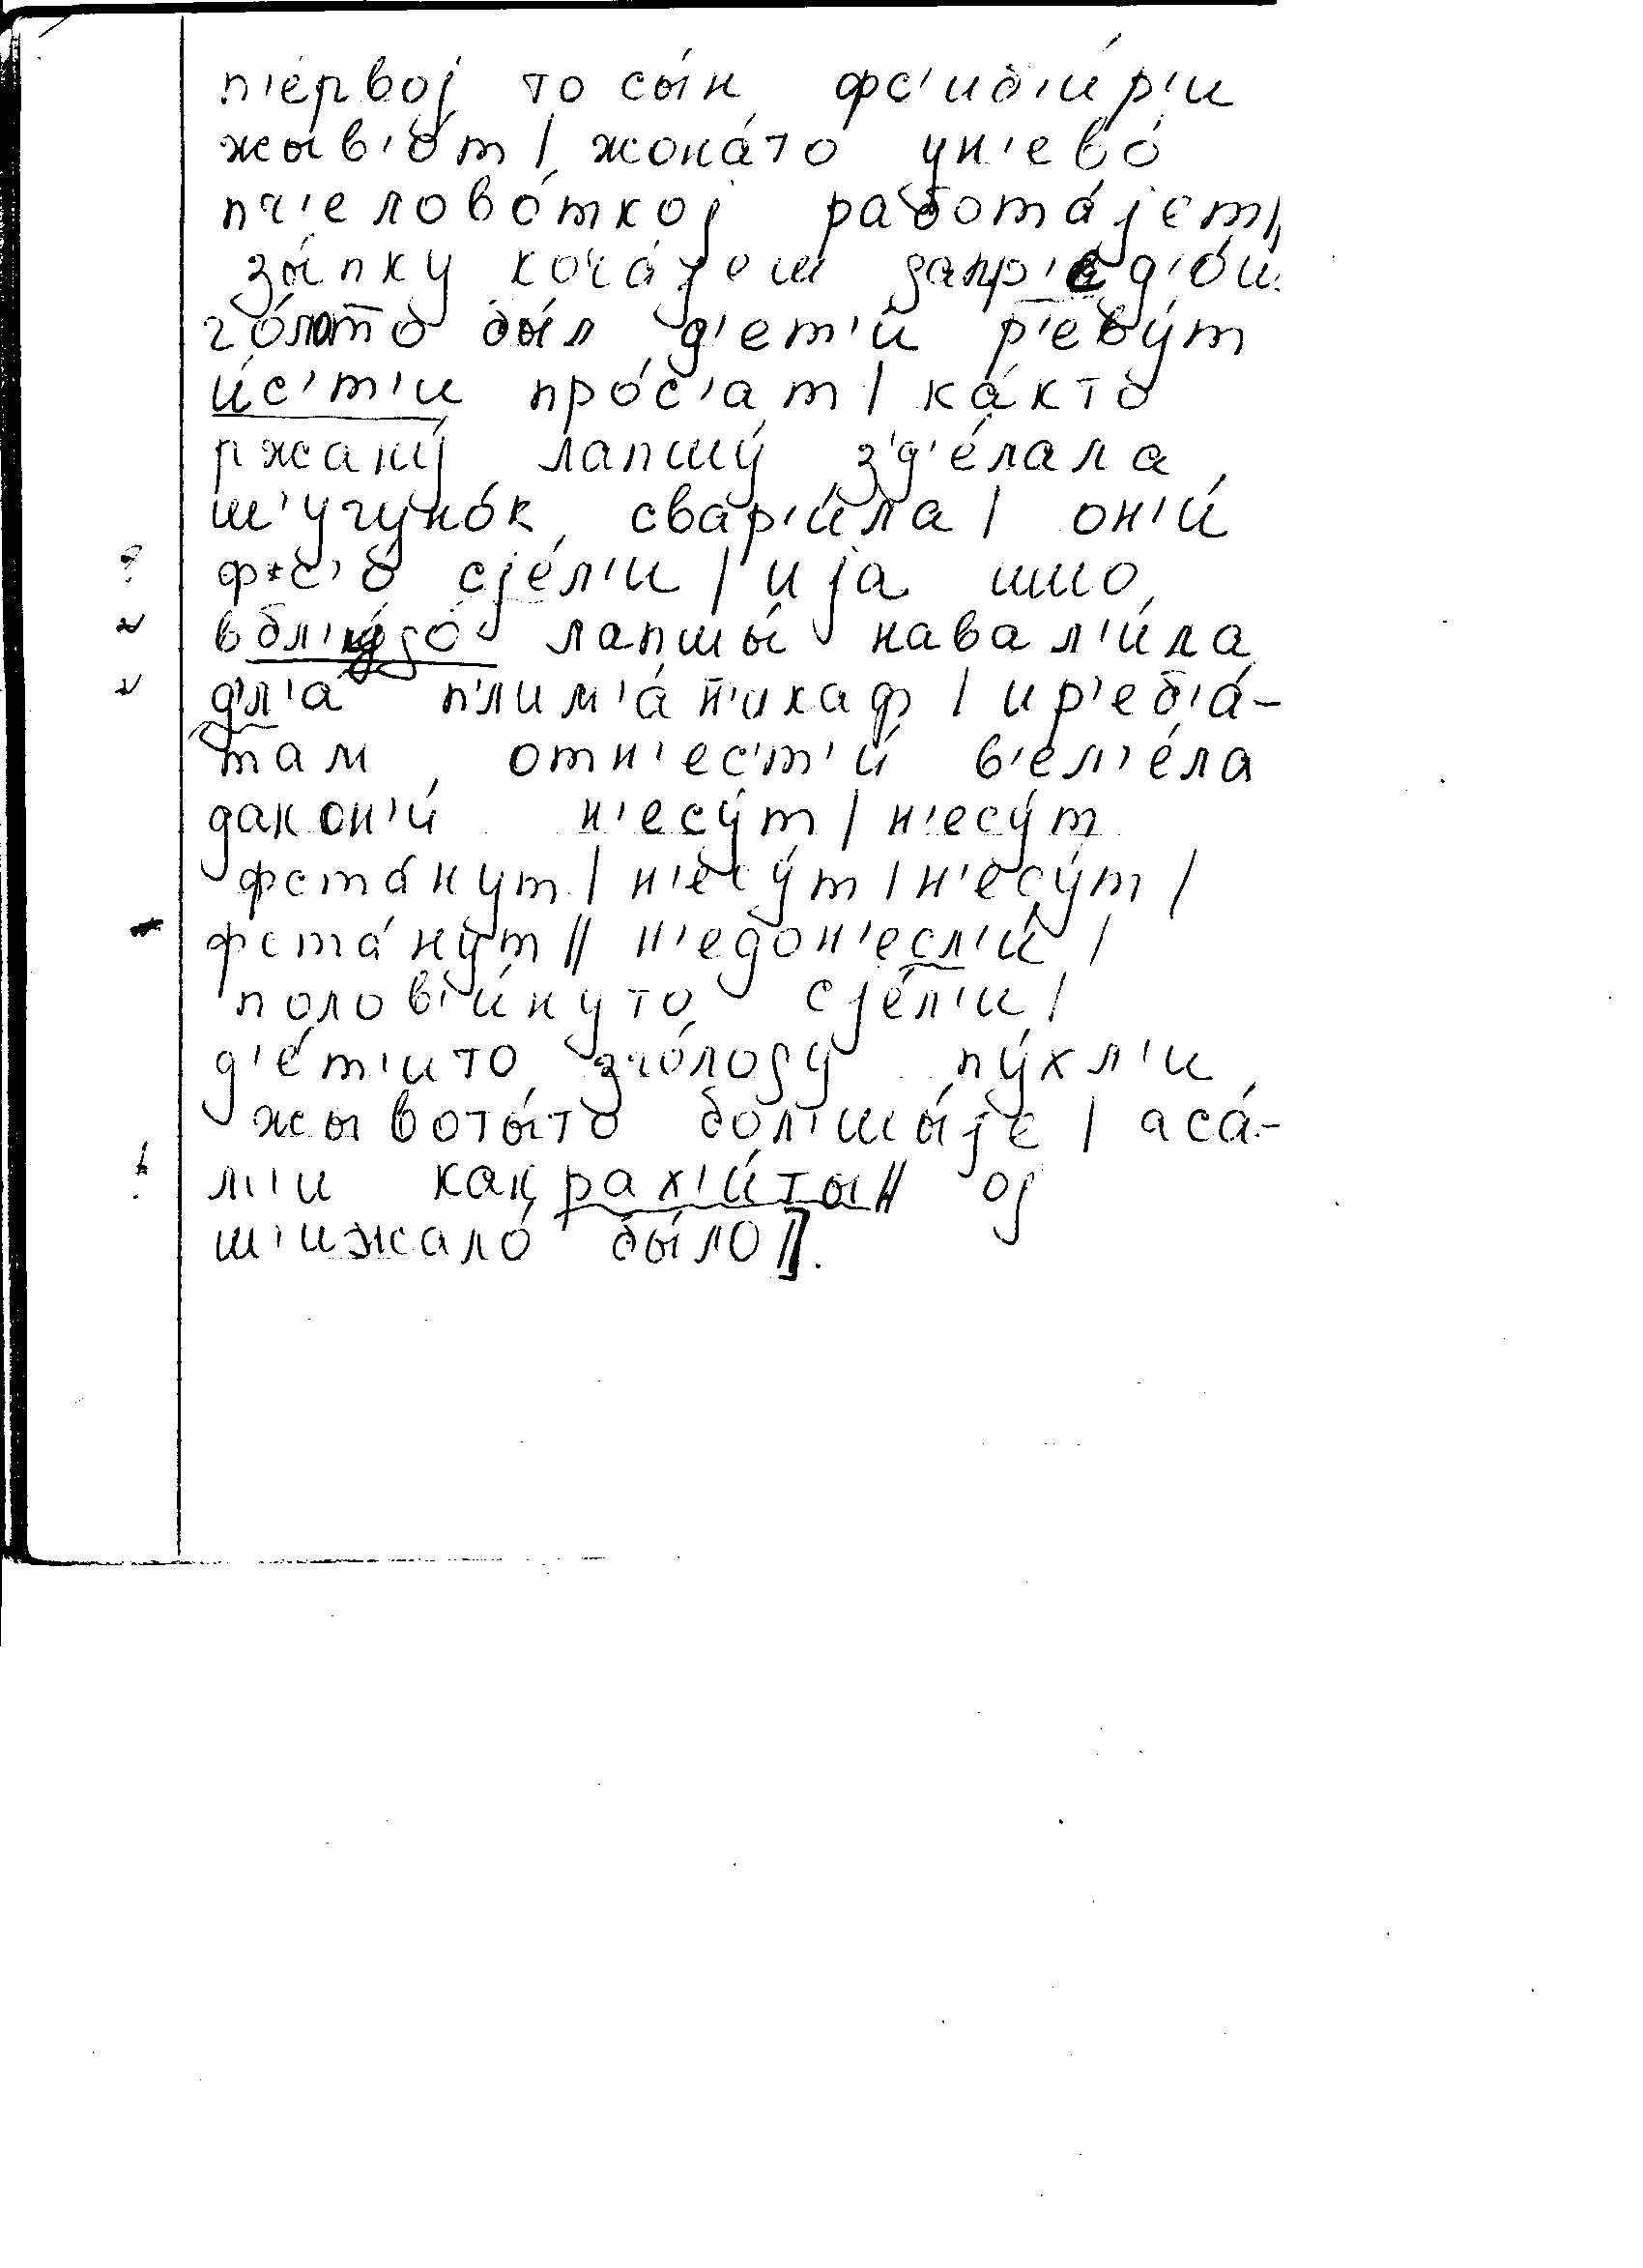 п'е́рвој то сы́н фс'иб'и́р'и
жыв'о́т | жона́то ун'ево́
пч'елово́ткој работа́јет ||
зы́пку кача́јеш запр'ед'о́ш
го́лотто бы́л д'ет'и́ р'еву́т
и́с'т'и про́с'ат | ка́кто
ржану́ лапшу́ з'д'е́лала
ш'угуно́к свар'и́ла | он'и́
фс'о́ сје́л'и | иjа шшо
? в бл'у́до лапшы́ навал'и́ла
~ дл'а пл'им'а́н'икаф | ир'еб'а́-
~ там отн'ес'т'и́ в'ел'е́ла
дакон'и́ н'есу́т | н'есу́т
фста́нут | н'есу́т | н'есу́т |
фста́нут || н'едон'есл'и́ |
полов'и́нуто сје́л'и |
д'е́т'ито зго́лоду пу́хл'и
жывоты́то бол'шы́је | аса́-
! м'и как рах'и́ты || ој
т'ижало́ бы́ло ||].